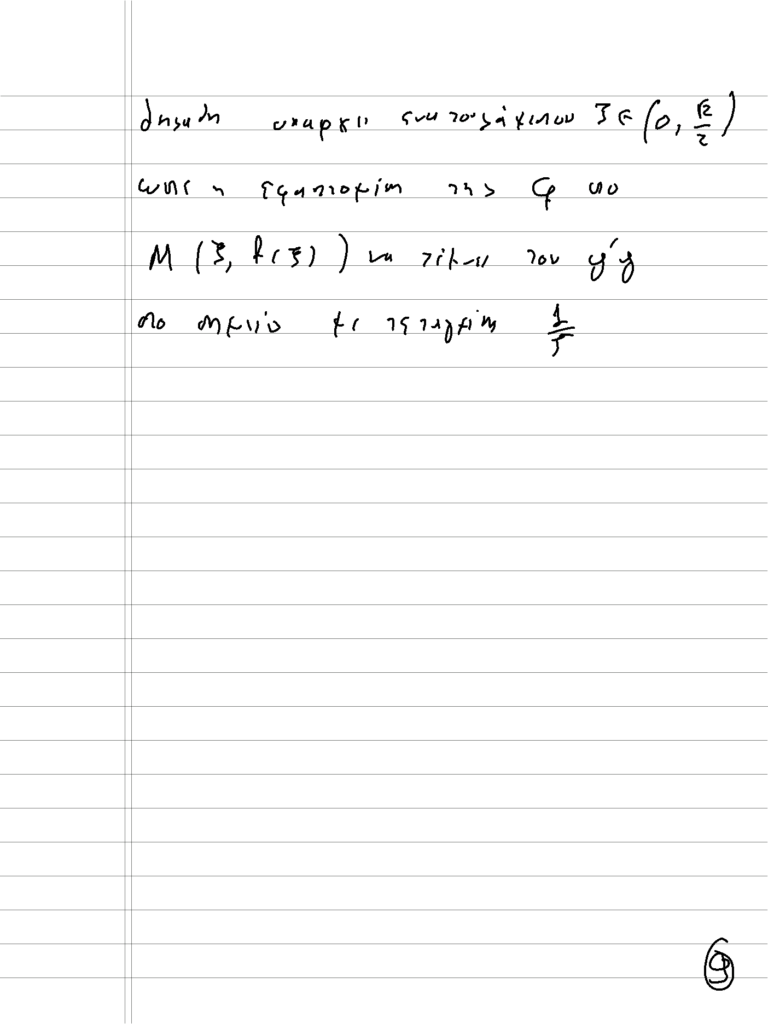 δηλαδή υπάρχει ένα τουλάχιστον ξ ∈ (0, √2/2)
ώστε η εφαπτομένη της Cf στο
M (ξ, f(ξ)) να τέμνει τον y'y
στο σημείο με τεταγμένη 1/5
9